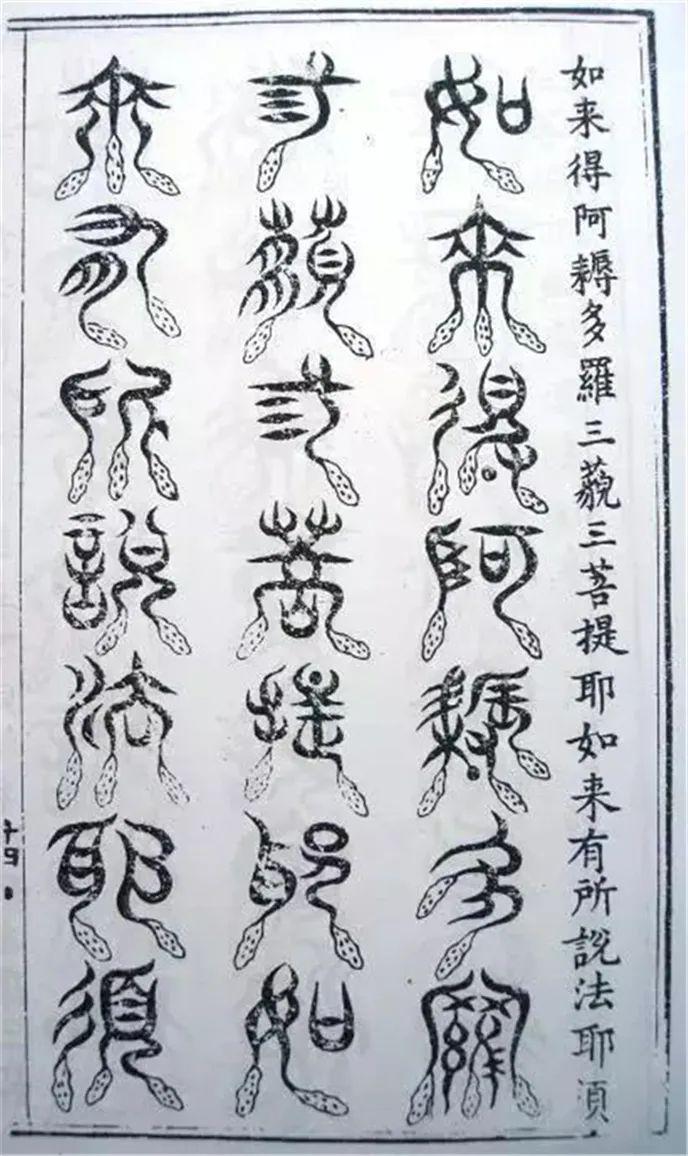 如来得阿耨多羅三藐三菩提耶如来有所說法耶須
如來得阿耨多羅
三藐三菩提耶如
來有所說法耶須